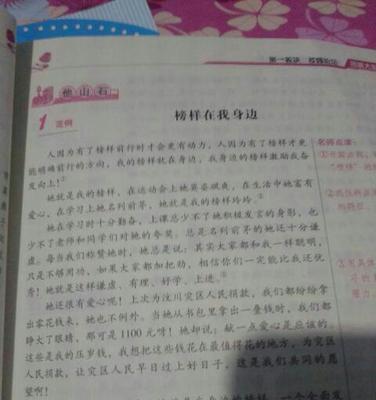 他山石
榜样在我身边
1 范例
人因为有了榜样前行时才会更有动力，人因为有了榜样才更
能明确前行的方向，我的榜样就在身边，我身边的榜样激励我奋
发向上！①
她就是我的榜样，在运动会上她英姿飒爽，在生活中她富有
爱心，在学习上她名列前茅，她就是我的榜样玲玲。②
她在学习时十分勤奋，上课总少不了她积极发言的身影，也
少不了老师和同学们对她的夸奖。总是名列前茅的她还十分谦
虚。每当我们称赞她时，她总是说：其实大家都和我一样聪明，
只是不够用功，如果大家都加把劲，相信你们一定能比我还优
秀！她就是这样谦虚、有理、好学、上进。
她还很有爱心呢！上次为汶川灾区人民捐款，我们都纷纷拿
出零花钱来，她也不例外。当她从书包里拿出一叠钱时，我们都
睁大了眼睛，那可是1100元呀！她却说：献一点爱心是应该的，
这些是我的压岁钱，我想把这些钱花在最值得花的地方，为灾区
人民捐款，让灾区人民早日过上好日子，这是我们共同的愿
望啊！
名师点津：